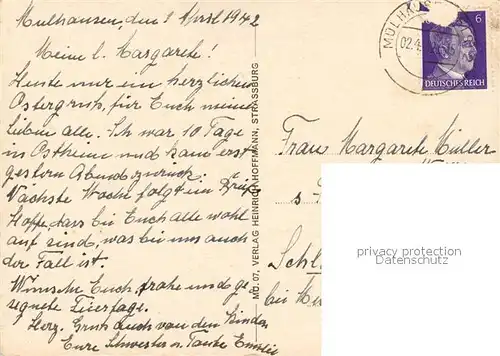 Mülhausen, den 1 April 1942
Meine l. Margarete!
Heute nur ein herzlichen
Ostergruß, für Euch meine
lieben alle. Ich war 10 Tage
in Ostheim und kam erst
gestern Abend zurück.
Nächste Woche folgt ein Brief
Hoffe, dass bei Euch alle wohl
auf sind, was bei uns auch
der Fall ist.
Wünsche Euch, frohe und ge
segnete Feiertage.
Herz. Gruß auch von den Kinder
Eure Schwester u. Tante
MÜLHAUS
02.4
6
DEUTSCHES REICH
MÜ. 07, VERLAG HEINRICH HOFFMANN, STRASSBURG
Frau Margarete Müller
s
Schl
bei
privacy protection
Datenschutz